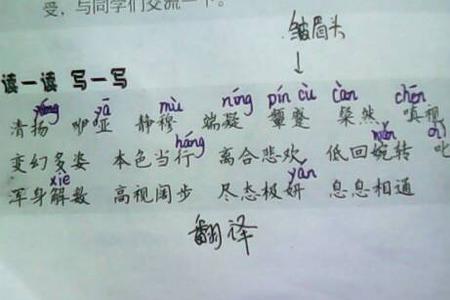 受，与同学们交流一下。
皱眉头
读一读 写一写
yáng yā mù níng pín cù càn chēn
清扬 咿哑 静穆 端凝 颦蹙 粲然 嗔视
háng wǎn chì
变幻多姿 本色当行 离合悲欢 低回婉转 叱
xiè yán
浑身解数 高视阔步 尽态极妍 息息相通
翻译